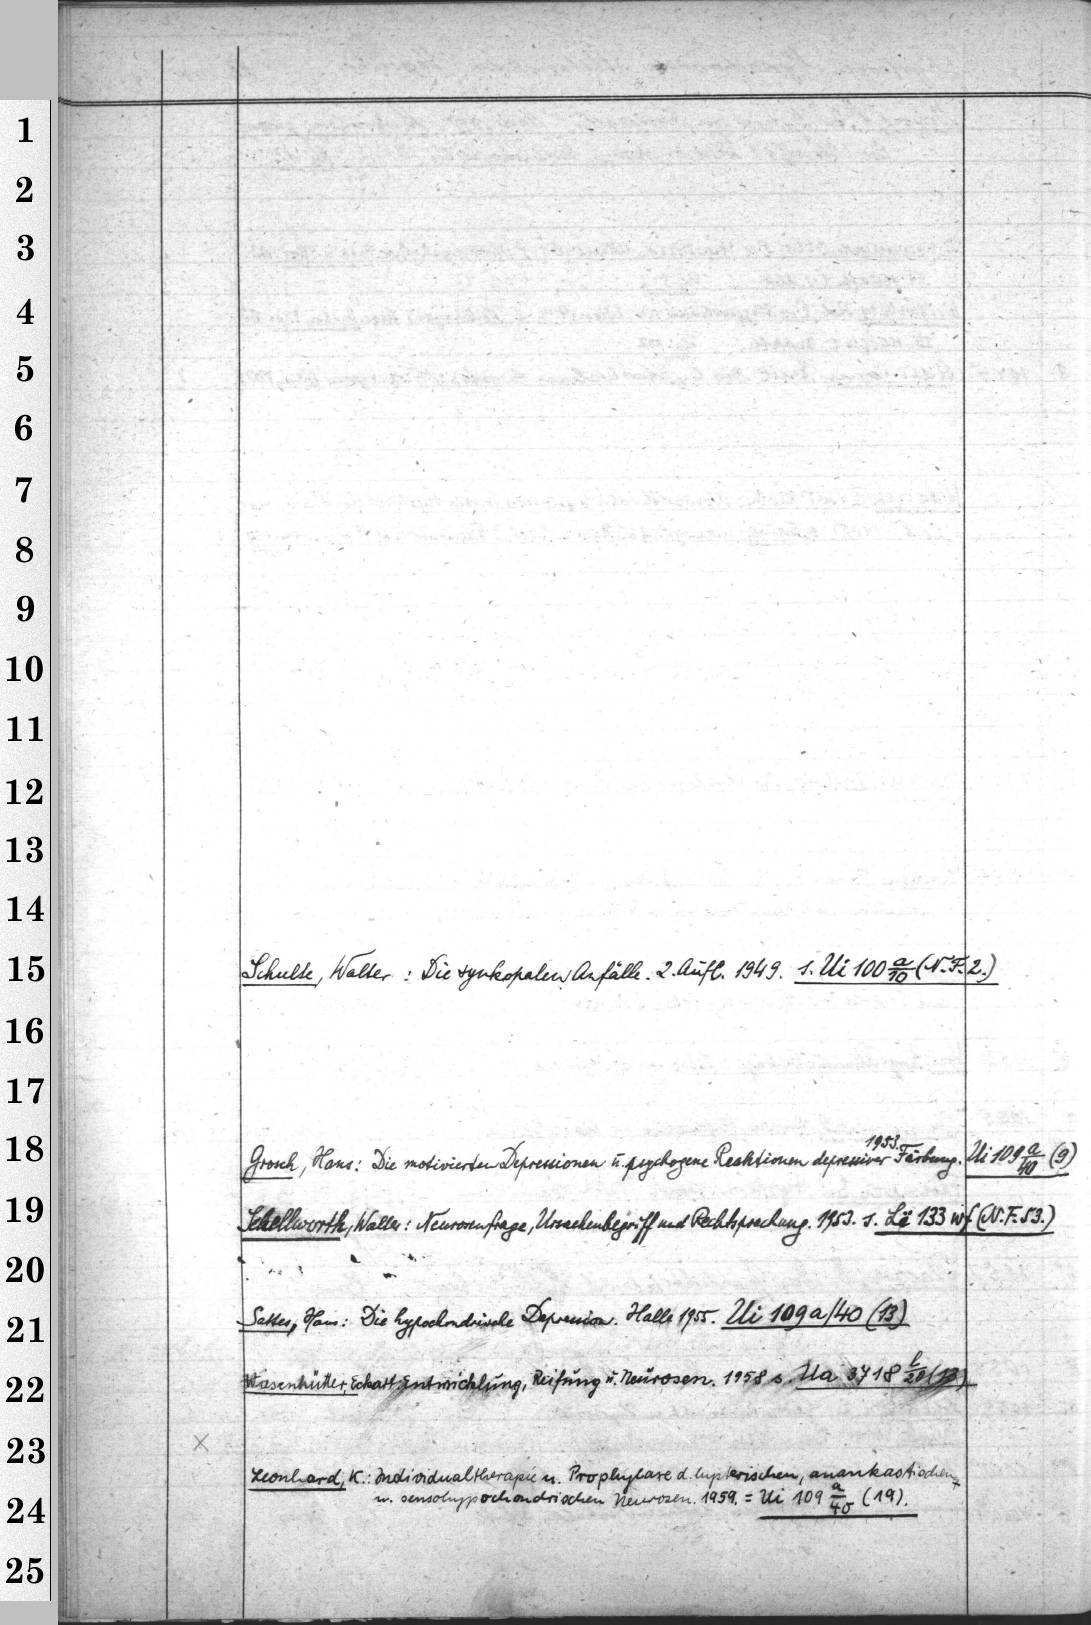 1
2
3
4
5
6
7
8
9
10
11
12
13
14
15
Schulte, Walter: Die synkopalen Anfälle. 2. Aufl. 1949. s. Ui 100 a/10 (N.F. 2.)
16
17
18
1953.
Grosch, Hans: Die motivierten Depressionen u. psychogene Reaktionen depressiver Färbung. Ui 109 a/40 (9)
19
Schellworth, Walter: Neurosenfrage, Ursachenbegriff und Rechtsprechung. 1953. s. Lë 133 wf (N.F. 53.)
20
21
Sattes, Hans: Die hypochondrische Depression. Halle 1955. Ui 109a/40 (13)
22
Wasenhüttler, Eckart: Entwicklung, Reifung u. Neurosen. 1958 s. Ua 3718 /20 (13)
23
×
Leonhard, K.: Individualtherapie u. Prophylaxe d. hysterischen, anankastischen
24
u. sensohypochondrischen Neurosen. 1959. = Ui 109 a/40 (19).
25